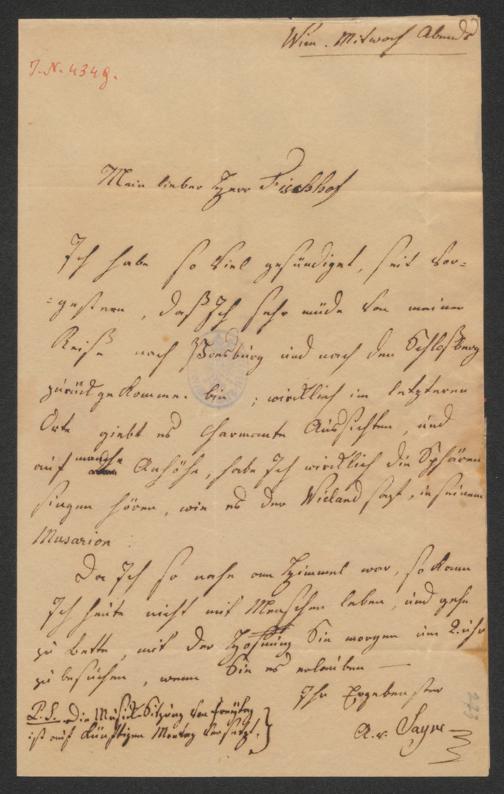 Wien. Mitwoch Abends
J.N. 4349.
Mein lieber Herr Fischhof
Ich habe so viel gesündiget, seit vor=
=gestern, daß Ich sehr müde von meiner
Reise nach Presburg und nach den Schloßberg
zurück gekommen bin; wircklich im letzteren
Orte giebt es charmante Aussichten, und
auf manche Anhöhe, habe Ich wircklich die Sphären
singen hören, wie es der Wieland sagt, in seinem
Musarion
Da Ich so nahe am Himmel war, so kann
Ich heute nicht mit Menschen leben, und gehe
zu Bette, mit der Hoffnung Sie morgen um 2 Uhr
zu besuchen, wenn Sie es erlauben —
Ihr Ergebenster
A. v.
P.S. Die Musick Sitzung von Freytag
ist auf künftigen Montag versetzt.